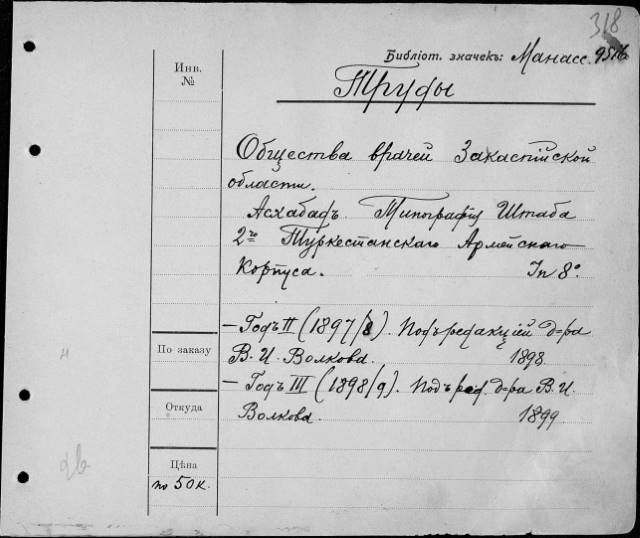 318
Библіот. значекъ: Манасс. 9516
Инв.
№
Труды
Общества врачей Закаспійской
области.
Асхабадъ. Типографія Штаба
2го Туркестанскаго Армейскаго
Корпуса. In 8°
— Годъ II (1897/8). Подъ редакціей д-ра
По заказу
В. И. Волкова. 1898.
— Годъ III (1898/9). Подъ ред. д-ра В. И.
Откуда
Волкова. 1899
Цѣна
по 50 к.